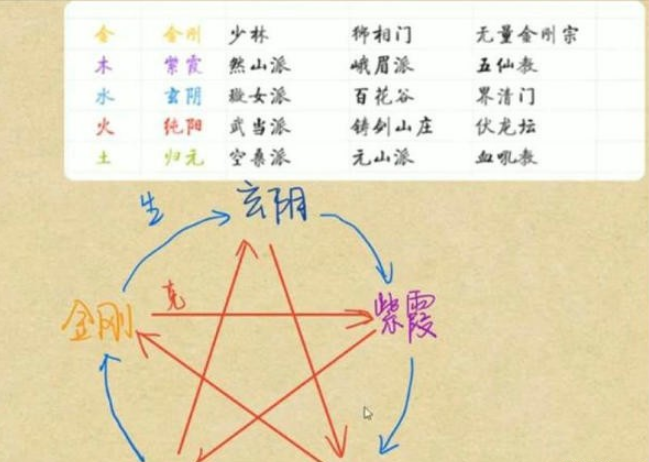 金 金刚 少林 狮相门 无量金刚宗
木 紫霞 然山派 峨眉派 五仙教
水 玄阴 璇女派 百花谷 界青门
火 纯阳 武当派 铸剑山庄 伏龙坛
土 归元 空桑派 元山派 血吼教
生 玄阴
克
金刚 紫霞